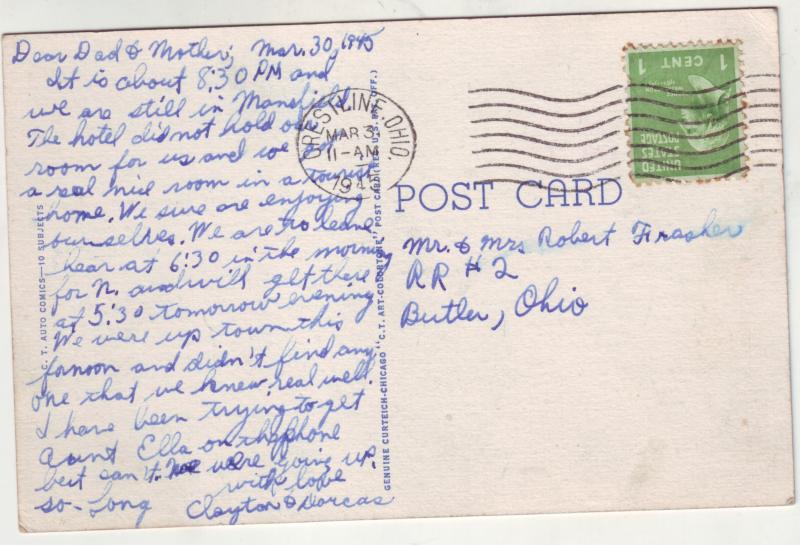 Dear Dad & Mother, Mar. 30, 1945
It is about 8:30 PM and
we are still in Mansfield
The hotel did not hold our
room for us and we got
a real nice room in a tourist
home. We sure are enjoying
ourselves. We are to leave
hear at 6:30 in the morning
for N. and will get there
at 5:30 tomorrow evening
We were up town this
fornoon and didn't find any
one that we knew real well.
I have been trying to get
Aunt Ella on the phone
but can't. We were going up.
with love
so-Long Clayton & Dorcas
C. T. AUTO COMICS—10 SUBJECTS
GENUINE CURTEICH-CHICAGO "C.T. ART-COLORTONE" POST CARD (REG. U.S. PAT. OFF.)
CRESTLINE, OHIO.
MAR 3
11-AM
194
POST CARD
1 CENT 1
UNITED
STATES
POSTAGE
Mr. & Mrs Robert Frasher
RR # 2
Butler, Ohio